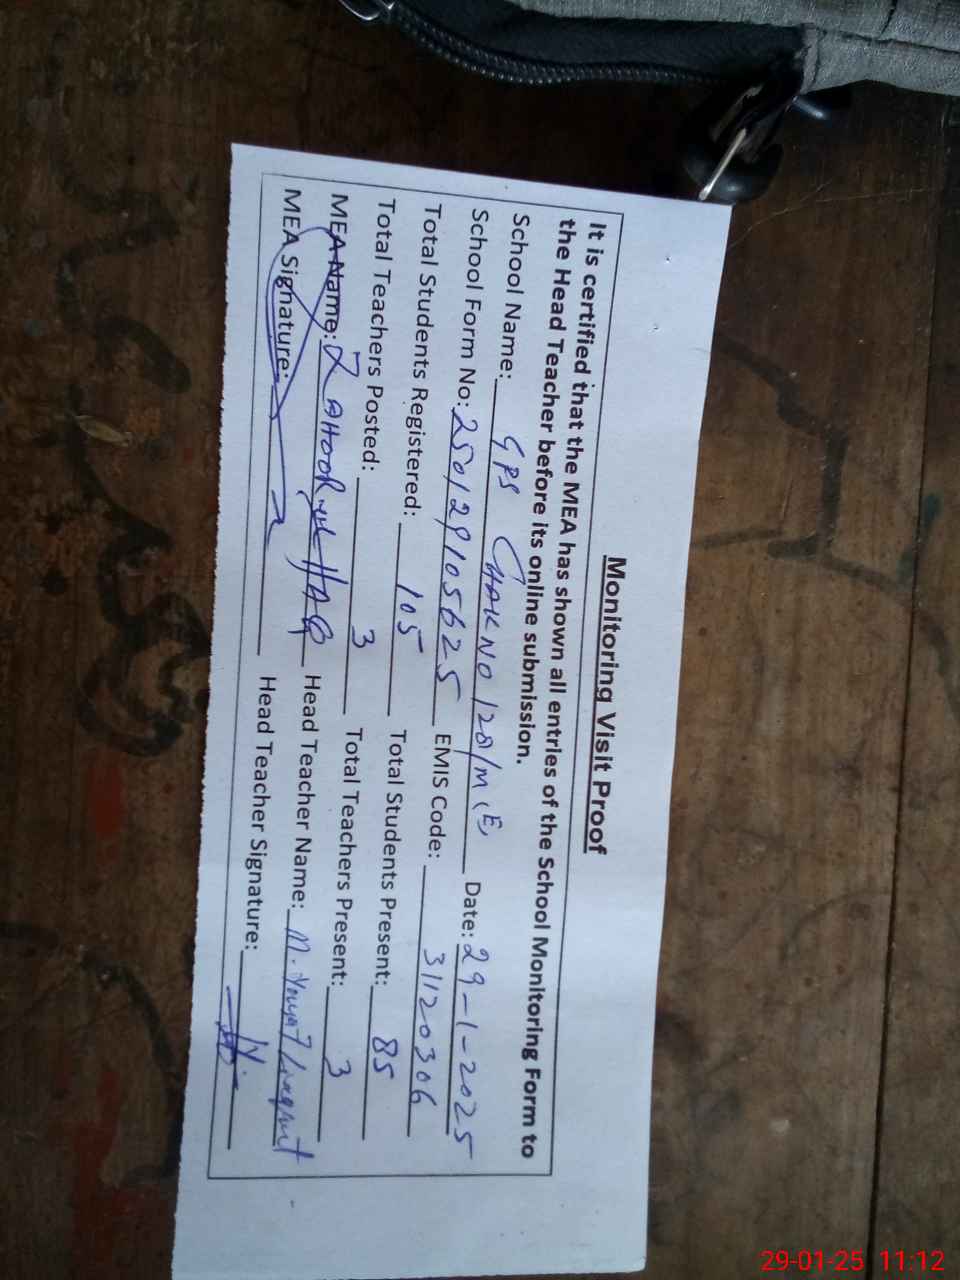 Monitoring Visit Proof
It is certified that the MEA has shown all entries of the School Monitoring Form to
the Head Teacher before its online submission.
School Name: GPS CHAK NO 128/M (E) Date: 29-1-2025
School Form No: 250129105625 EMIS Code: 31120306
Total Students Registered: 105 Total Students Present: 85
Total Teachers Posted: 3 Total Teachers Present: 3
MEA Name: ZAHOOR ul HAQ Head Teacher Name: M. Liaquat
MEA Signature: Head Teacher Signature:
29-01-25 11:12